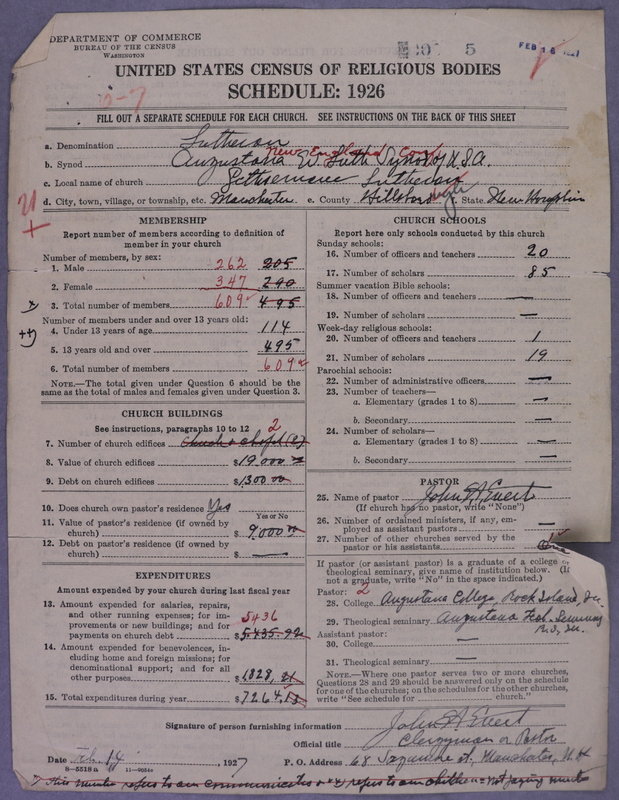 DEPARTMENT OF COMMERCE
BUREAU OF THE CENSUS
WASHINGTON
5
FEB 16 1927
UNITED STATES CENSUS OF RELIGIOUS BODIES
SCHEDULE: 1926
FILL OUT A SEPARATE SCHEDULE FOR EACH CHURCH. SEE INSTRUCTIONS ON THE BACK OF THIS SHEET
a. Denomination Lutheran
New England Conf
b. Synod Augustana Ev. Luth Synod of U.S.A.
c. Local name of church Gethsemane Lutheran
d. City, town, village, or township, etc. Manchester e. County Hillsboro f. State New Hampshire
MEMBERSHIP
Report number of members according to definition of
member in your church
Number of members, by sex:
1. Male 262 205
2. Female 347 290
3. Total number of members 609 495
Number of members under and over 13 years old:
4. Under 13 years of age 114
5. 13 years old and over 495
6. Total number of members 609
NOTE.—The total given under Question 6 should be
same as the total of males and females given under Question 3.
CHURCH BUILDINGS
See instructions, paragraphs 10 to 12
7. Number of church edifices Church & Chapel (2) 2
8. Value of church edifices $19,000
9. Debt on church edifices $1300
10. Does church own pastor's residence Yes
Yes or No
11. Value of pastor's residence (if owned by
church) $ 9,000
12. Debt on pastor's residence (if owned by
church) $ —
EXPENDITURES
Amount expended by your church during last fiscal year
13. Amount expended for salaries, repairs,
and other running expenses; for im-
provements or new buildings; and for 5436
payments on church debt $5,435.92
14. Amount expended for benevolences,
including home and foreign missions; for
denominational support; and for all
other purposes $1,828.21
15. Total expenditures during year $7264.13
CHURCH SCHOOLS
Report here only schools conducted by this church
Sunday schools:
16. Number of officers and teachers 20
17. Number of scholars 85
Summer vacation Bible schools:
18. Number of officers and teachers —
19. Number of scholars —
Week-day religious schools:
20. Number of officers and teachers 1
21. Number of scholars 19
Parochial schools:
22. Number of administrative officers —
23. Number of teachers—
a. Elementary (grades 1 to 8) —
b. Secondary —
24. Number of scholars—
a. Elementary (grades 1 to 8) —
b. Secondary —
PASTOR
25. Name of pastor John A. Evert
(If church has no pastor, write "None")
26. Number of ordained ministers, if any, em-
ployed as assistant pastors —
27. Number of other churches served by the
pastor or his assistants One
If pastor (or assistant pastor) is a graduate of a college or
theological seminary, give name of institution below. (If
not a graduate, write "No" in the space indicated.)
Pastor: 2
28. College Augustana College, Rock Island, Ill.
29. Theological seminary Augustana Theol. Seminary
R.I., Ill.
Assistant pastor:
30. College —
31. Theological seminary —
NOTE.—Where one pastor serves two or more churches,
Questions 28 and 29 should be answered only on the schedule
for one of the churches; on the schedules for the other churches,
write "See schedule for church."
Signature of person furnishing information John A. Evert
Official title Clergyman or Pastor
Date Feb. 14, 1927 P. O. Address 68 Sagamore St. Manchester, N.H
8—5518 a